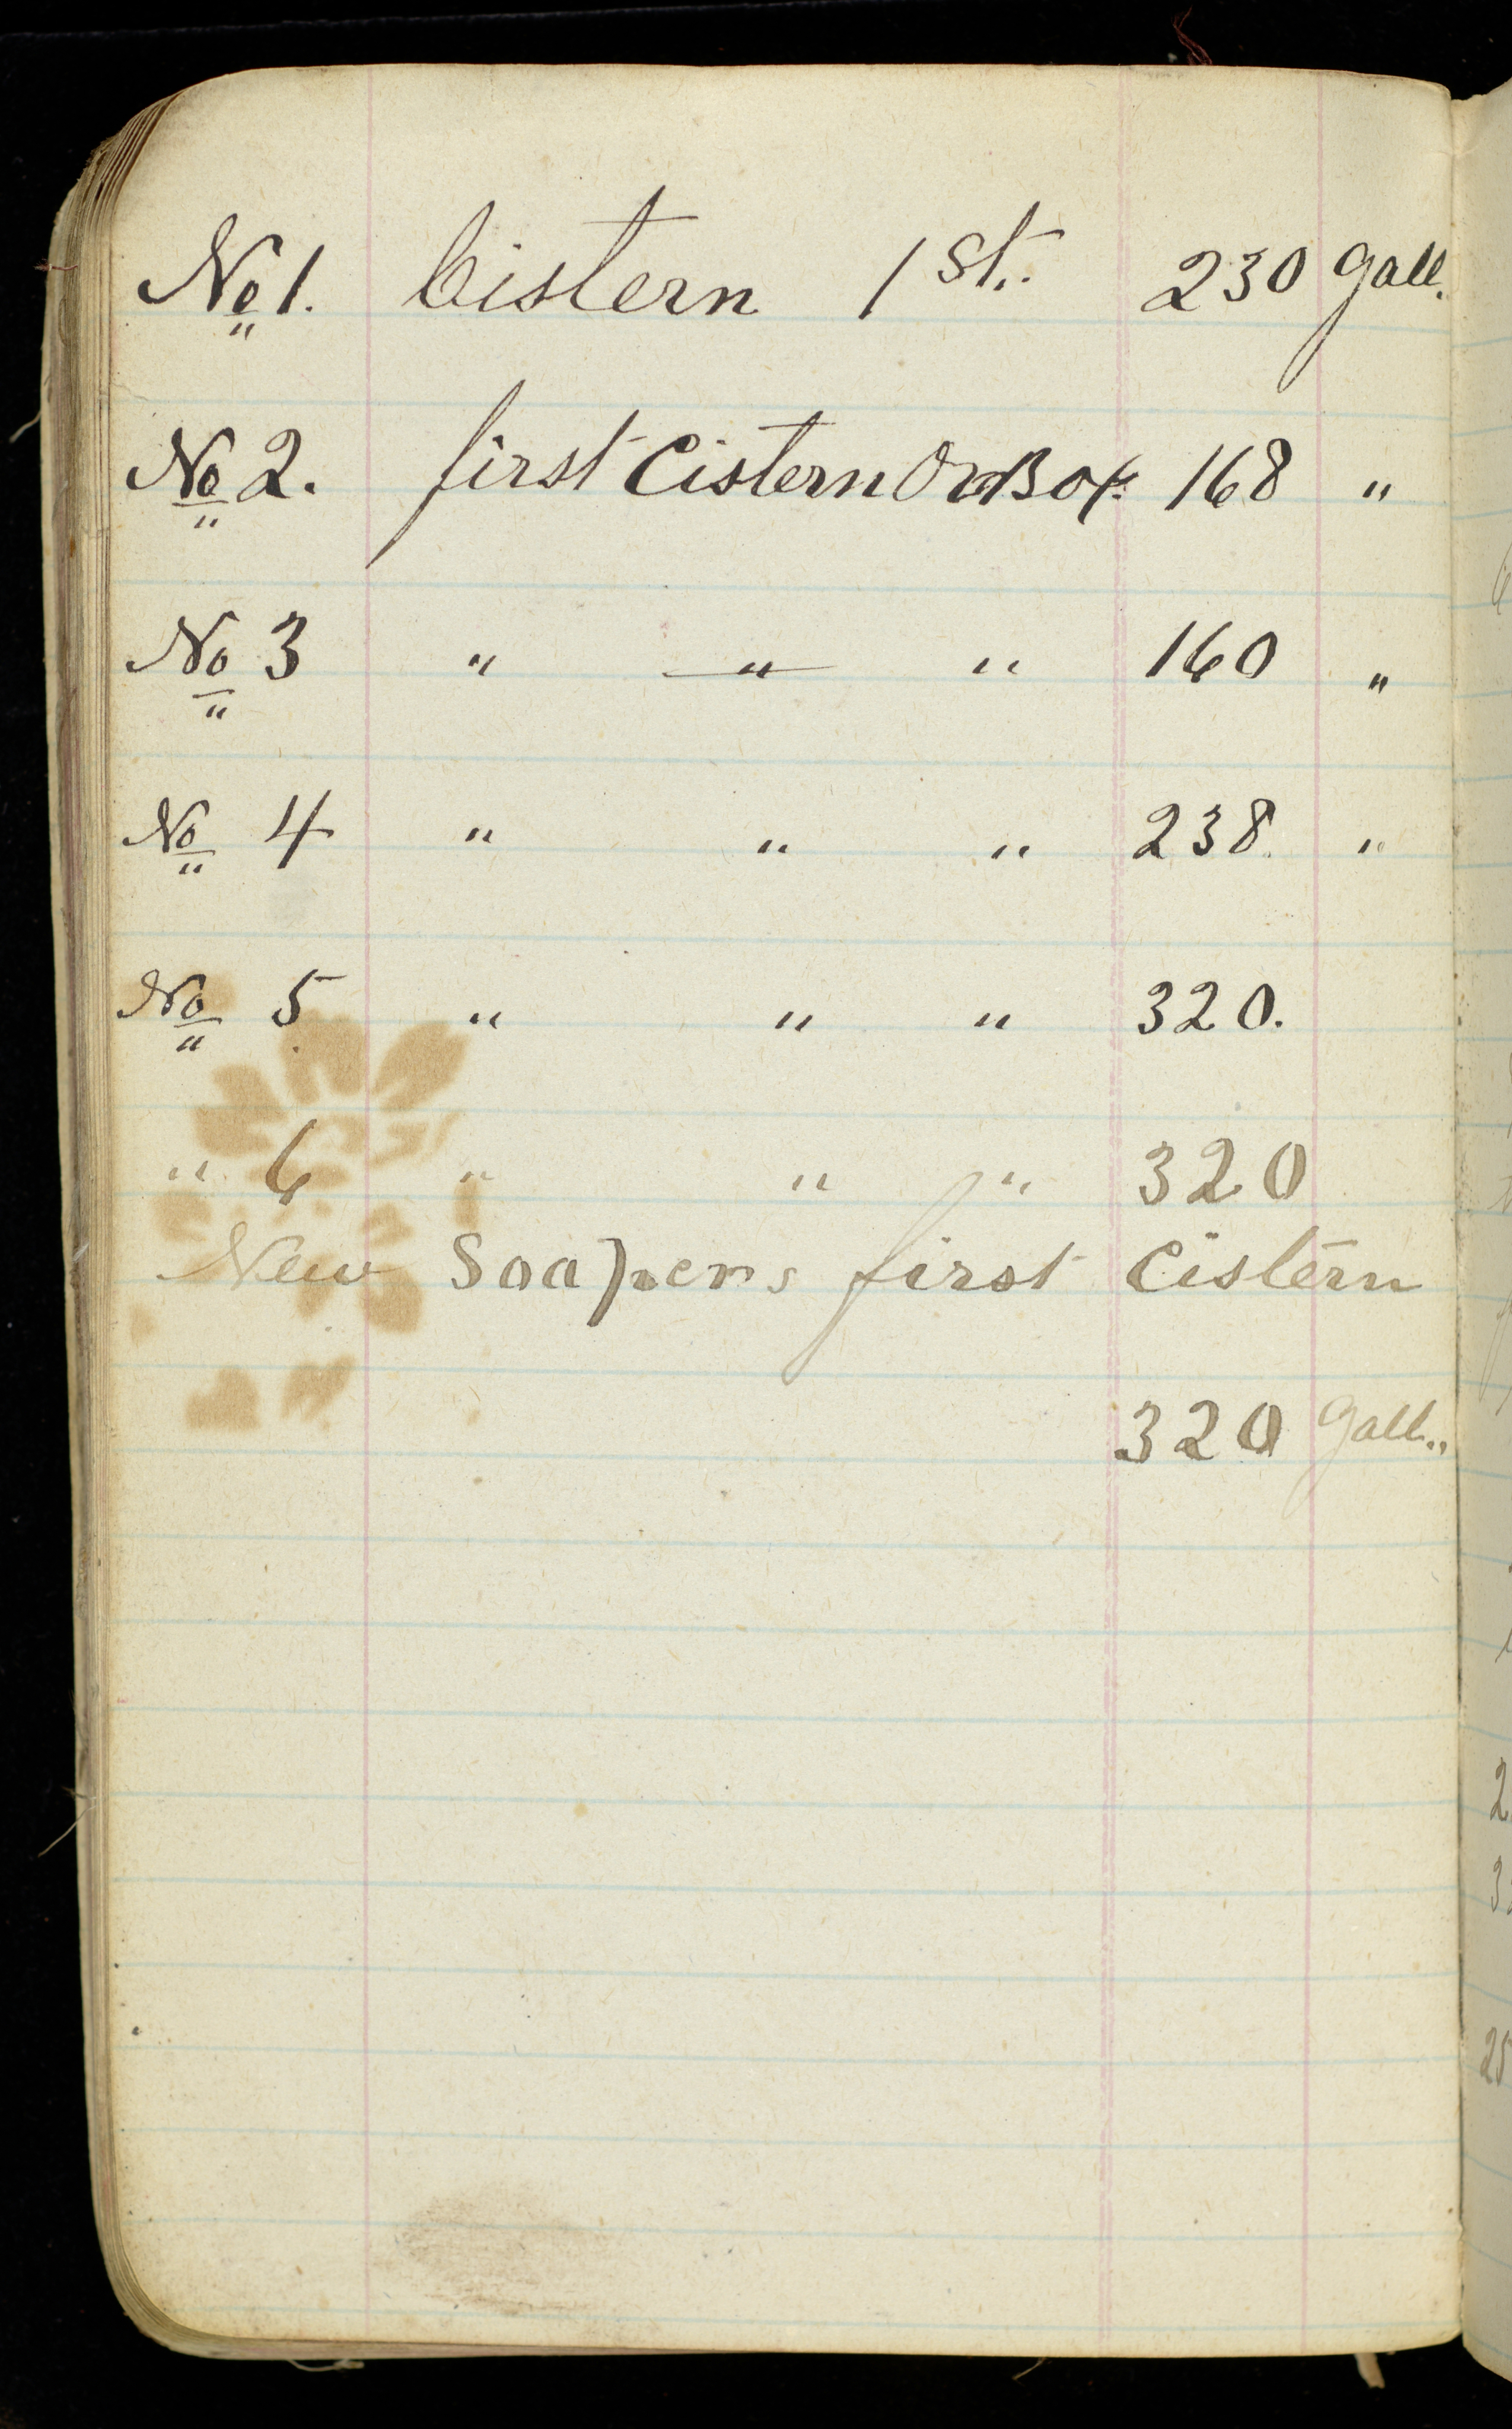 No 1. Cistern 1st. 230 gall.
No 2. first Cistern Or Box. 168 "
No 3 " " " 160 "
No 4 " " " 238. "
No 5 " " " 320.
" 6 " " " 320
New Soapers first Cistern
320 gall.